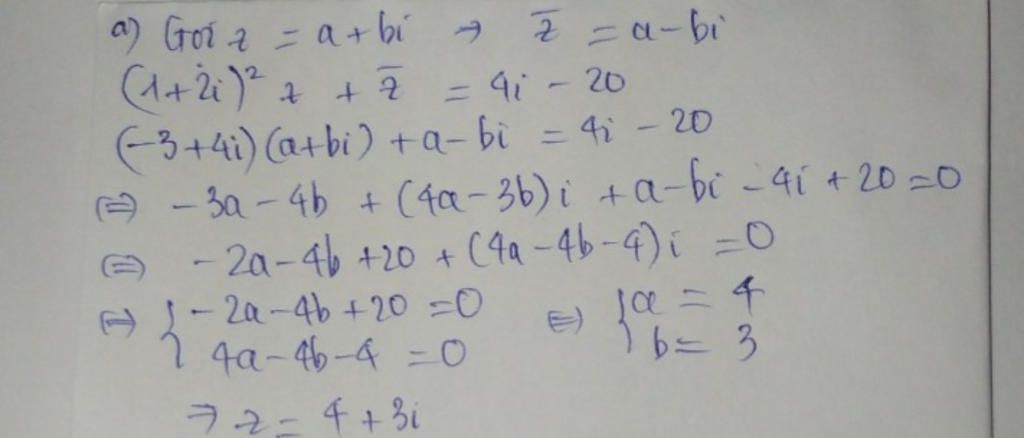 a) Gọi z = a + bi → z̅ = a - bi
(1+2i)² z + z̅ = 4i - 20
(-3+4i)(a+bi) + a - bi = 4i - 20
(=) -3a - 4b + (4a - 3b)i + a - bi - 4i + 20 = 0
(=) -2a - 4b + 20 + (4a - 4b - 4)i = 0
(=) { -2a - 4b + 20 = 0 (=) { a = 4
4a - 4b - 4 = 0 b = 3
→ z = 4 + 3i